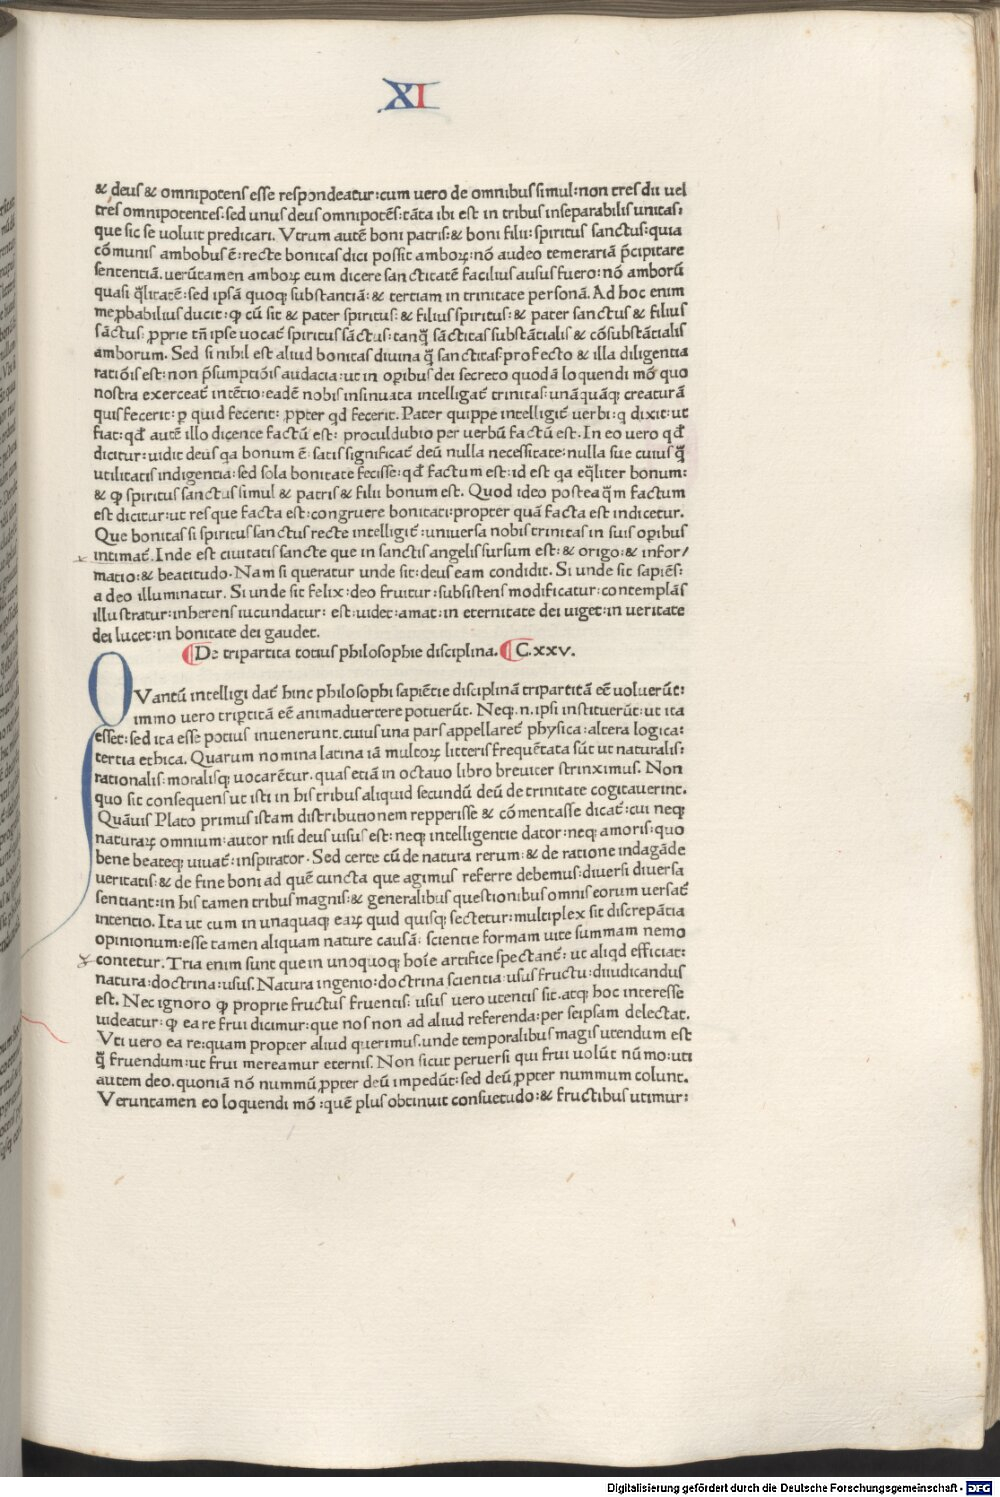 XI
& deus & omnipotens esse respondeatur:cum uero de omnibus simul:non tres dii uel
tres omnipotentes:sed unus deus omnipotēs:tāta ibi est in tribus inseparabilis unitas:
que sic se uoluit predicari. Vtrum autē boni patris:& boni filii:spiritus sanctus:quia
cōmunis ambobus ē:recte bonitas dici possit amboꝝ:nō audeo temerariā p̄cipitare
sentētiā.uerūtamen amboꝝ eum dicere sanctitatē facilius ausus fuero:nō amborū
quasi q̄litatē:sed ipsā quoqꝫ substantiā:& tertiam in trinitate personā. Ad hoc enim
me ꝓbabilius ducit:ꝙ cū sit & pater spiritus:& filius spiritus:& pater sanctus & filius
sāctus:ꝓprie tn̄ ipse uocat᷑ spiritus sāctus:tanq̄ sāctitas substātialis & cōsubstātialis
amborum. Sed si nihil est aliud bonitas diuina q̄ sanctitas:profecto & illa diligentia
ratiōis est:non p̄sumptiōis audacia:ut in oꝑibus dei secreto quodā loquendi mō quo
nostra exerceat᷑ intētio:eadē nobis insinuata intelligat᷑ trinitas:unāquāqꝫ creaturā
quis fecerit:ꝑ quid fecerit:ꝓpter qd̄ fecerit. Pater quippe intelligit᷑ uerbi:q dixit:ut
fiat:qd̄ autē illo dicente factū est:proculdubio per uerbū factū est. In eo uero qd̄
dicitur:uidit deus qa bonum ē:satis significat᷑ deū nulla necessitate:nulla sue cuius q̄
utilitatis indigentia:sed sola bonitate fecisse:qd̄ factum est:id est qa eq̄liter bonum:
& ꝙ spiritus sanctus simul & patris & filii bonum est. Quod ideo postea q̄m factum
est dicitur:ut res que facta est:congruere bonitati:propter quā facta est indicetur.
Que bonitas si spiritus sanctus recte intelligit᷑:uniuersa nobis trinitas in suis oꝑibus
intimat᷑.Inde est ciuitatis sancte que in sanctis angelis sursum est:& origo:& infor/
matio:& beatitudo. Nam si queratur unde sit:deus eam condidit. Si unde sit sapiēs:
a deo illuminatur. Si unde sit felix:deo fruitur:subsistens modificatur:contemplās
illustratur:inherens iucundatur: est:uidet:amat:in eternitate dei uiget:in ueritate
dei lucet:in bonitate dei gaudet.
De tripartita totius philosophie disciplina. C.xxv.
QVantū intelligi dat᷑ hinc philosophi sapiētie disciplinā tripartitā eē uoluerūt:
immo uero triꝑtitā eē animaduertere potuerūt. Neqꝫ.n.ipsi instituerūt:ut ita
esset:sed ita esse potius inuenerunt.cuius una pars appellaret᷑ physica:altera logica:
tertia ethica. Quarum nomina latina iā multoꝝ litteris frequētata sūt ut naturalis:
rationalis:moralisqꝫ uocarētur.quas etiā in octauo libro breuiter strinximus. Non
quo sit consequens ut isti in his tribus aliquid secundū deū de trinitate cogitauerint.
Quāuis Plato primus istam distributionem repperisse & cōmentasse dicat᷑:cui neqꝫ
naturaꝝ omnium:autor nisi deus uisus est:neqꝫ intelligentie dator:neqꝫ amoris:quo
bene beateqꝫ uiuat᷑:inspirator. Sed certe cū de natura rerum:& de ratione indagāde
ueritatis:& de fine boni ad quē cuncta que agimus referre debemus:diuersi diuersa
sentiant:in his tamen tribus magnis:& generalibus questionibus omnis eorum uersat᷑
intentio. Ita ut cum in unaquaqꝫ eaꝝ quid quisqꝫ sectetur:multiplex sit discrepātia
opinionum:esse tamen aliquam nature causā: scientie formam uite summam nemo
contetur. Tria enim sunt que in unoquoqꝫ hoīe artifice spectant᷑: ut aliqd efficiat:
natura:doctrina:usus. Natura ingenio:doctrina scientia:usus fructu:diiudicandus
est. Nec ignoro ꝙ proprie fructus fruentis: usus uero utentis sit.atqꝫ hoc interesse
uideatur:ꝙ ea re frui dicimur:que nos non ad aliud referenda:per seipsam delectat.
Vti uero ea re:quam propter aliud querimus.unde temporalibus magis utendum est
q̄ fruendum:ut frui mereamur eternis. Non sicut peruersi qui frui uolūt nūmo:uti
autem deo.quoniā nō nummū ꝓpter deū impedūt:sed deū ꝓpter nummum colunt.
Veruntamen eo loquendi mō :quē plus obtinuit consuetudo:& fructibus utimur:
Digitalisierung gefördert durch die Deutsche Forschungsgemeinschaft - DFG